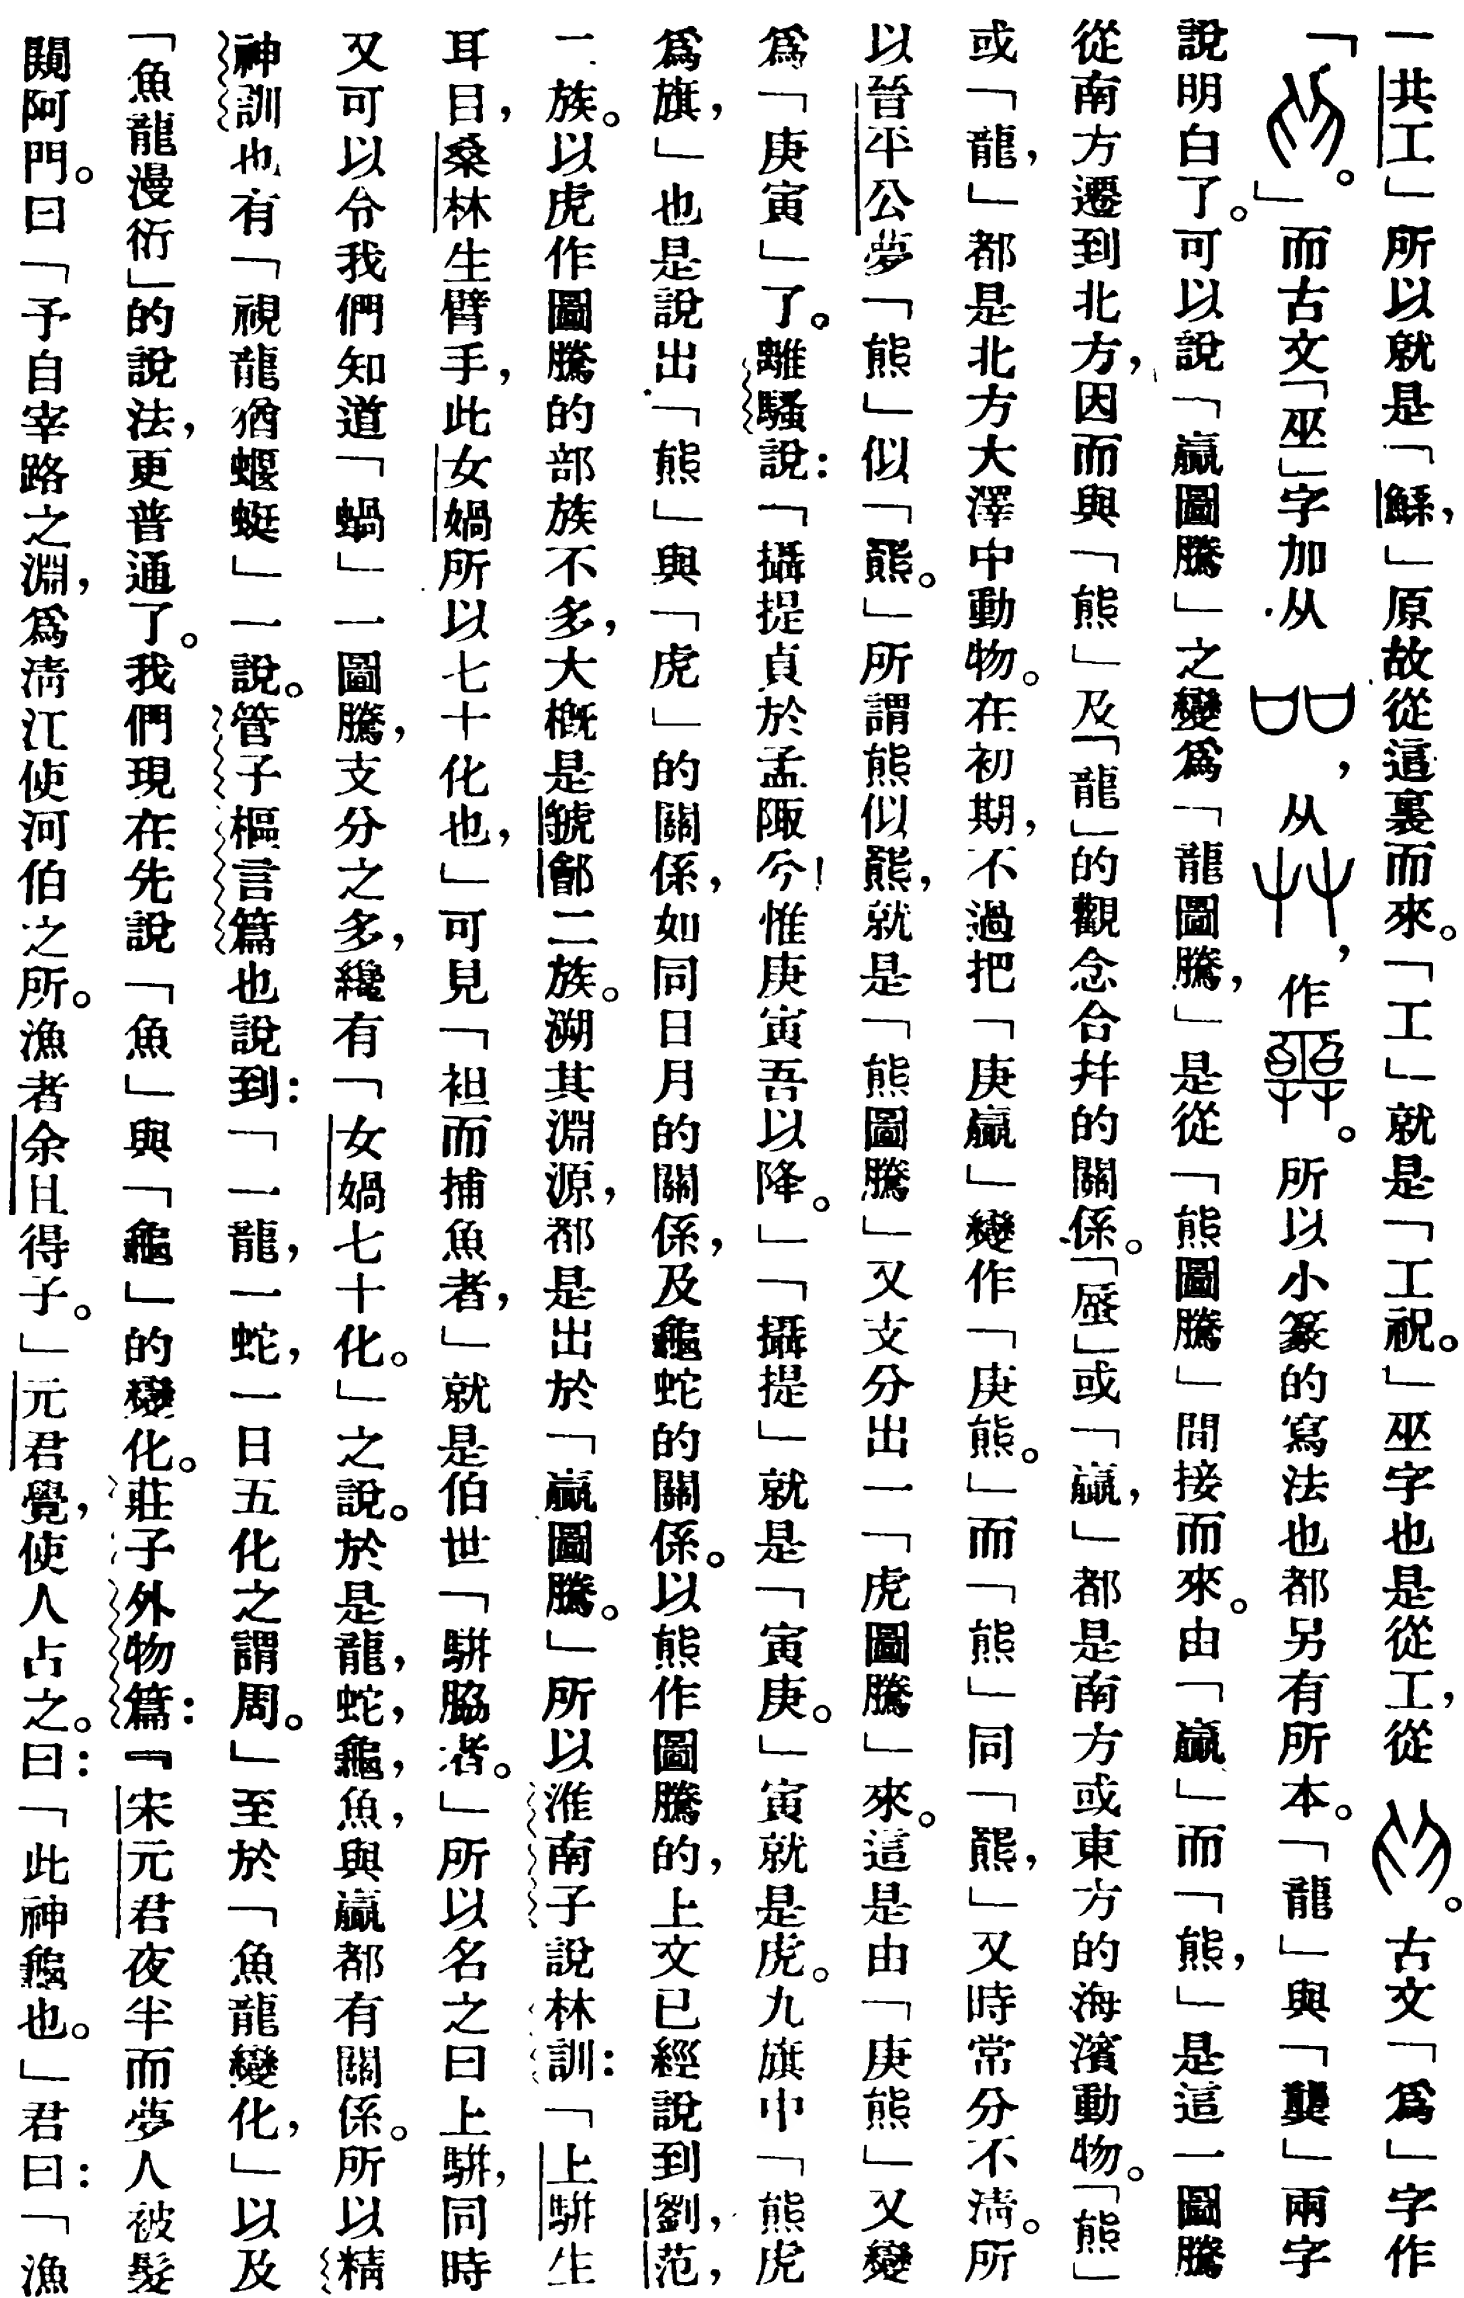 一共工」所以就是「鯀，」原故從這裏而來。「工」就是「工祝。」巫字也是從工，從 。古文「爲」字作
「 。」而古文「巫」字加从 ，从 ，作 。所以小篆的寫法也都另有所本。「龍」與「龏」兩字
說明白了。可以說「蠃圖騰」之變爲「龍圖騰，」是從「熊圖騰」間接而來。由「蠃」而「熊，」是這一圖騰
從南方遷到北方，因而與「熊」及「龍」的觀念合幷的關係。「蜃」或「蠃，」都是南方或東方的海濱動物。「熊」
或「龍，」都是北方大澤中動物。在初期，不過把「庚蠃」變作「庚熊。」而「熊」同「羆，」又時常分不淸。所
以晉平公夢「熊」似「羆。」所謂熊似羆，就是「熊圖騰」又支分出一「虎圖騰」來。這是由「庚熊」又變
爲「庚寅」了。離騷說：「攝提貞於孟陬兮！惟庚寅吾以降。」「攝提」就是「寅庚。」寅就是虎。九旗中「熊虎
爲旗，」也是說出「熊」與「虎」的關係，如同日月的關係，及龜蛇的關係。以熊作圖騰的，上文已經說到劉，范，
二族。以虎作圖騰的部族不多，大槪是虢鄶二族。溯其淵源，都是出於「蠃圖騰。」所以淮南子說林訓：「上駢生
耳目，桑林生臂手，此女媧所以七十化也，」可見「袒而捕魚者，」就是伯世「駢脇者。」所以名之曰上駢，同時
又可以令我們知道「蝸」一圖騰，支分之多，纔有「女媧七十化。」之說。於是龍，蛇，龜，魚，與蠃都有關係。所以精
神訓也有「視龍猶蝘蜓」一說。管子樞言篇也說到：「一龍，一蛇，一日五化之謂周。」至於「魚龍變化，」以及
「魚龍漫衍」的說法，更普通了。我們現在先說「魚」與「龜」的變化。莊子外物篇：『宋元君夜半而夢人被髮
闚阿門。曰「予自宰路之淵，爲淸江使河伯之所。漁者余且得予。」元君覺，使人占之。曰：「此神龜也。」君曰：「漁